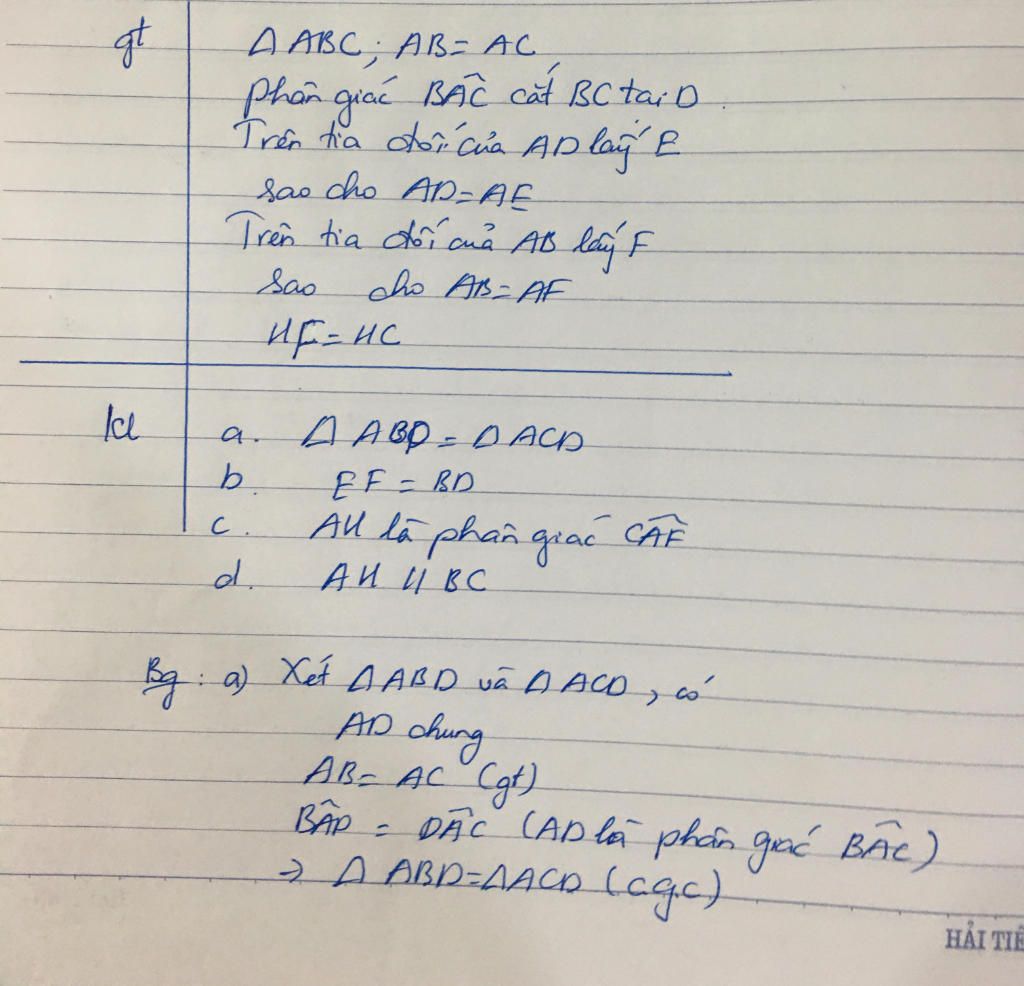 gt ΔABC; AB = AC
phân giác BÂC cắt BC tại D.
Trên tia đối của AD lấy E
sao cho AD = AE
Trên tia đối của AB lấy F
sao cho AB = AF
HF = HC
kl a. ΔABD = ΔACD
b. EF = BD
c. AH là phân giác CÂF
d. AH // BC
Bg: a) Xét ΔABD và ΔACD, có
AD chung
AB = AC (gt)
BÂD = DÂC (AD là phân giác BÂC)
→ ΔABD = ΔACD (c.g.c)
HẢI TIẾ